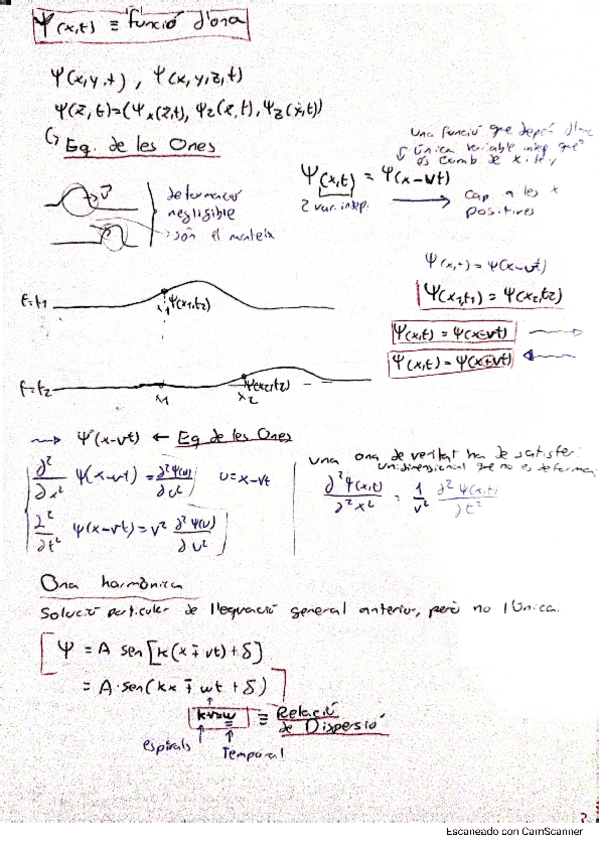 Ψ(x,t) ≡ funció d'ona
Ψ(x,y,t), Ψ(x,y,z,t)
Ψ(z,t)=(Ψx(z,t), Ψz(z,t), Ψz(x,t))
Eq. de les Ones
una funció que depèn d'una
única variable indep. que
és comb de x i t
Ψ(x,t) = Ψ(x-vt)
2 var. indep. → cap a les x
positives
v
deformació
negligible
són el mateix
Ψ(x,t) = Ψ(x-vt)
Ψ(x1,t1) = Ψ(x2,t2)
t=t1
x1 Ψ(x1,t2)
Ψ(x,t) = Ψ(x-vt) →
Ψ(x,t) = Ψ(x+vt) ←
t=t2
x1 x2 Ψ(x2,t2)
→ Ψ(x-vt) ← Eq de les Ones
∂²/∂x² Ψ(x-vt) = ∂²Ψ(u)/∂u² u=x-vt
∂²/∂t² Ψ(x-vt) = v² ∂²Ψ(u)/∂u²
una ona de veritat ha de satisfer:
unidimensional que no es deforma
∂²Ψ(x,t)/∂²x² = 1/v² ∂²Ψ(x,t)/∂t²
Ona harmònica
Solució particular de l'equació general anterior, però no l'única.
Ψ = A sen[k(x∓vt)+δ]
= A·sen(kx∓wt+δ)
kv=w ≡ Relació
de Dispersió
espirals Temporal
Escaneado con CamScanner